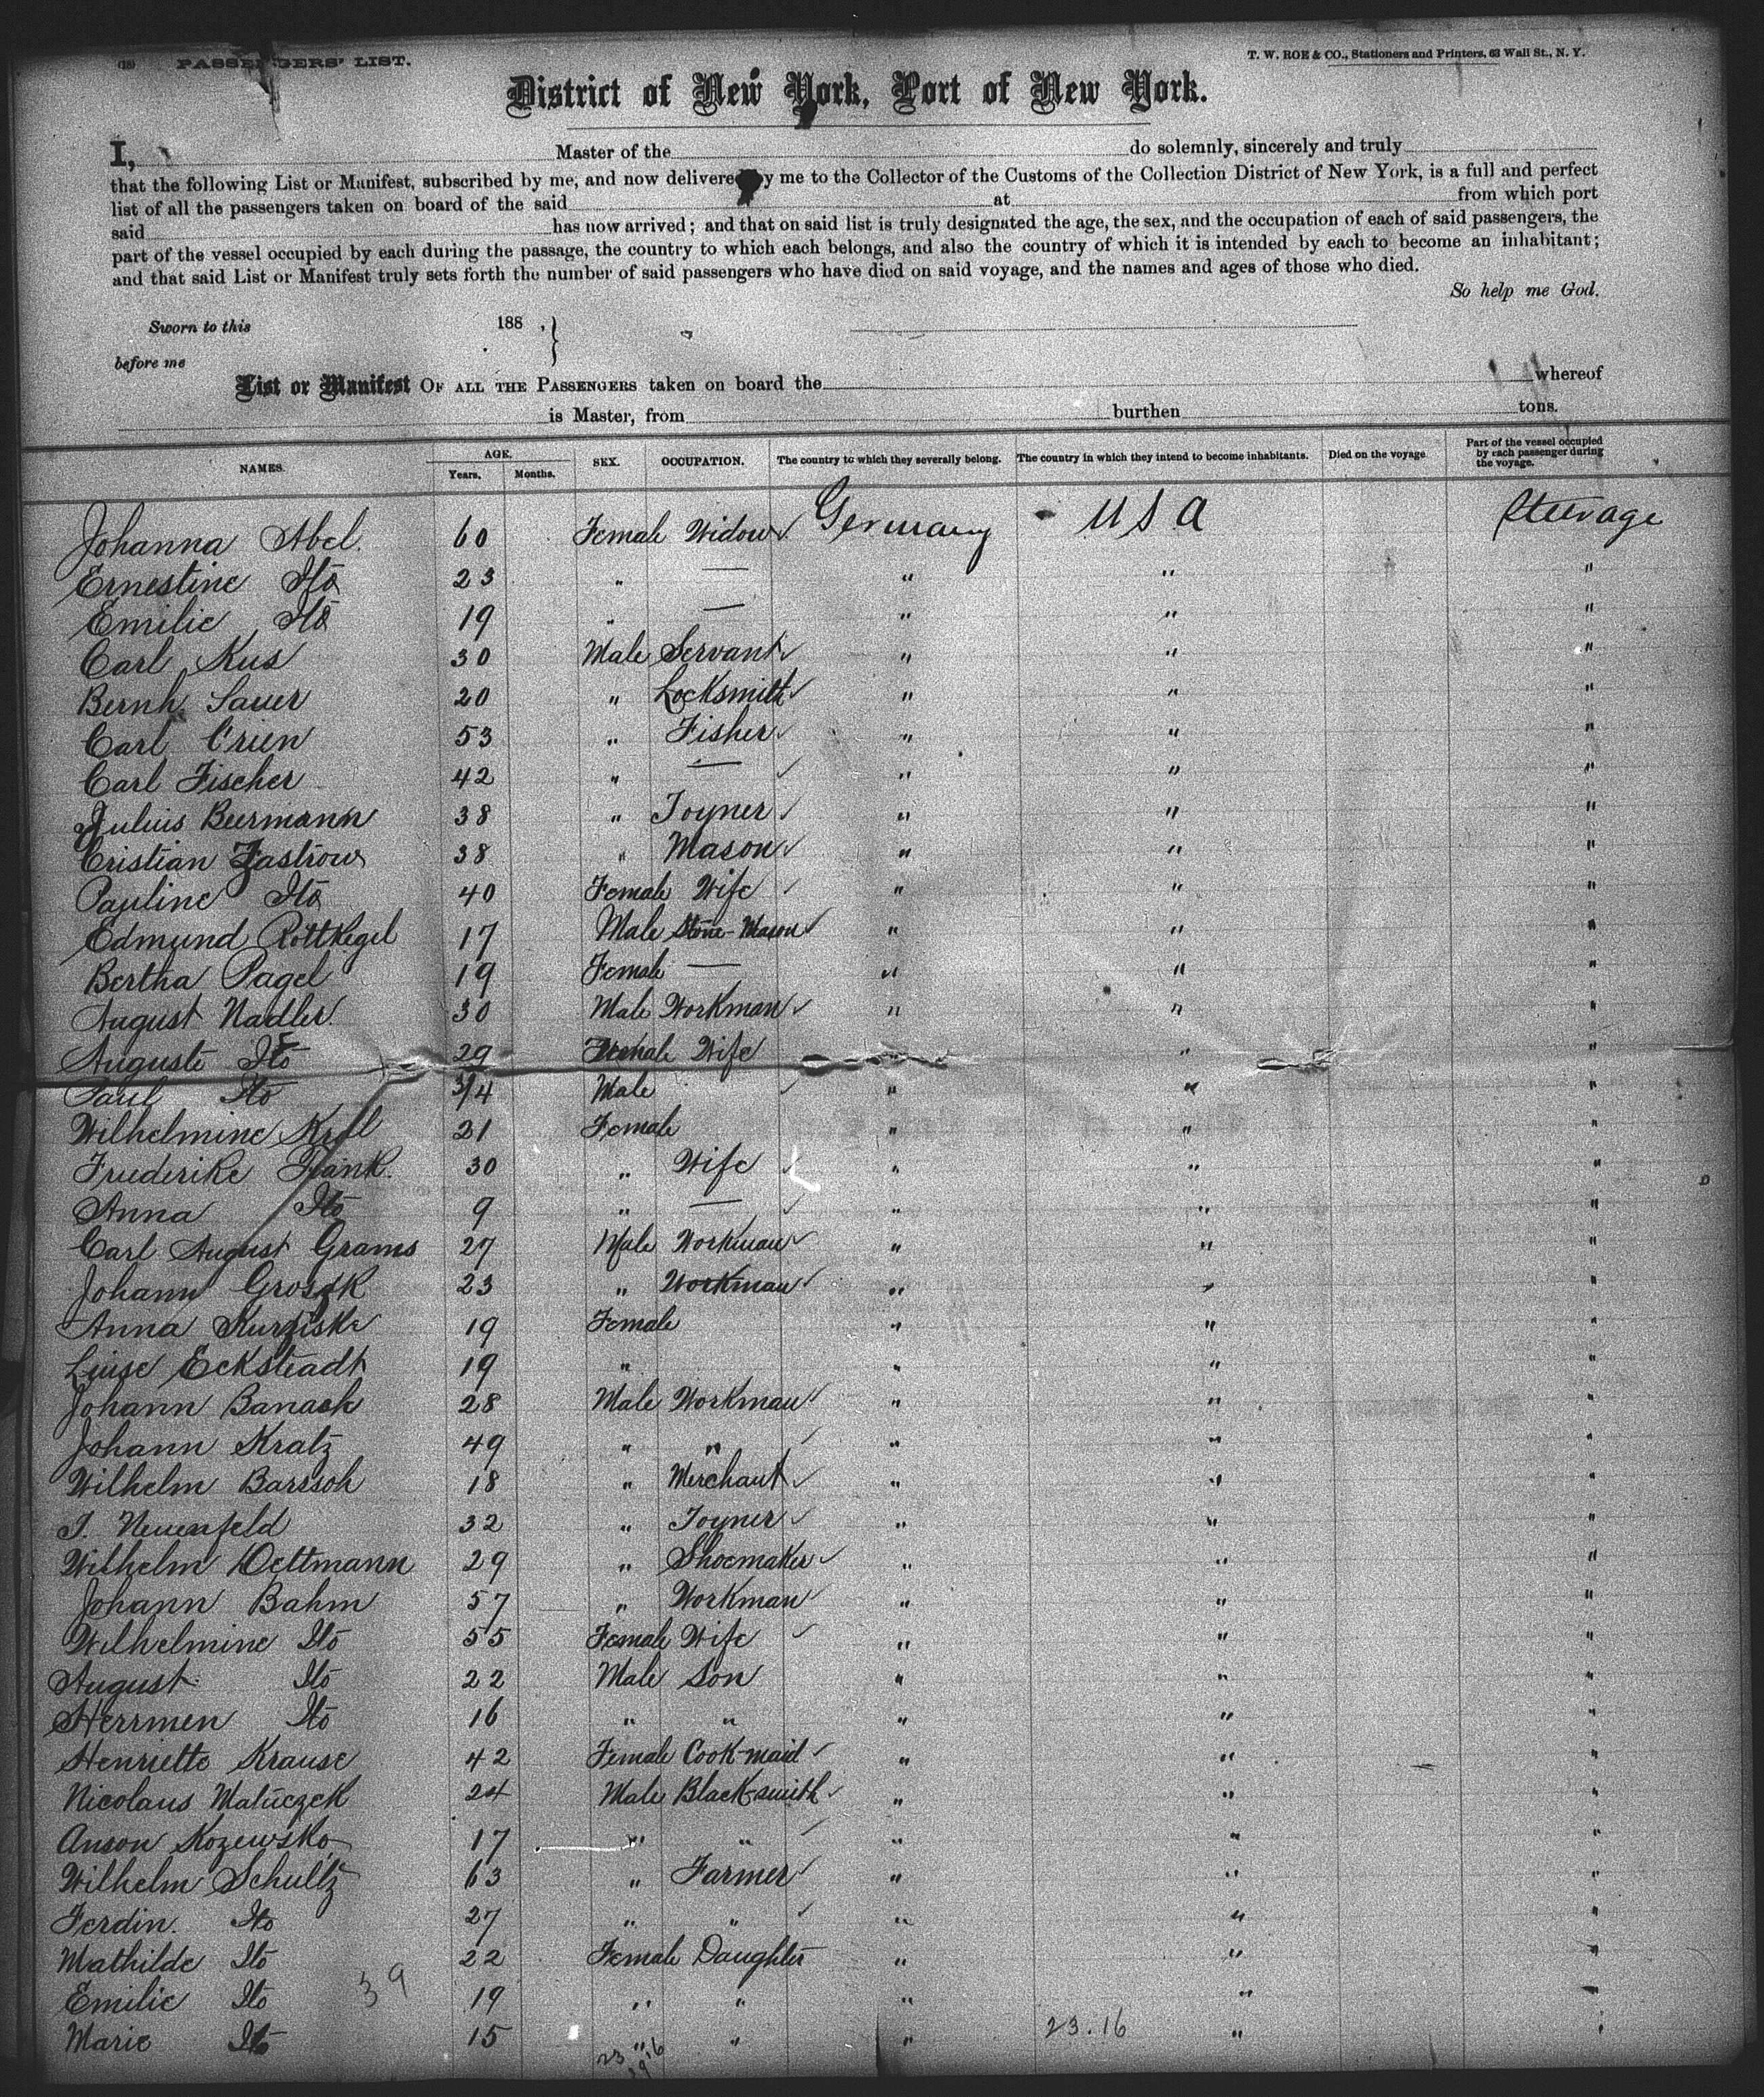 (18) PASSENGERS' LIST. T. W. ROE & CO., Stationers and Printers, 63 Wall St., N. Y.
District of New York, Port of New York.
I, Master of the do solemnly, sincerely and truly
that the following List or Manifest, subscribed by me, and now delivered by me to the Collector of the Customs of the Collection District of New York, is a full and perfect
list of all the passengers taken on board of the said at from which port
said has now arrived; and that on said list is truly designated the age, the sex, and the occupation of each of said passengers, the
part of the vessel occupied by each during the passage, the country to which each belongs, and also the country of which it is intended by each to become an inhabitant;
and that said List or Manifest truly sets forth the number of said passengers who have died on said voyage, and the names and ages of those who died.
So help me God.
Sworn to this 188 ,
before me
List or Manifest OF ALL THE PASSENGERS taken on board the whereof
is Master, from burthen tons.
NAMES. AGE. Years. Months. SEX. OCCUPATION. The country to which they severally belong. The country in which they intend to become inhabitants. Died on the voyage. Part of the vessel occupied by each passenger during the voyage.
Johanna Abel. 60 Female Widow Germany USA Steerage
Ernestine Ito 23 " — " " "
Emilie Ito 19 " — " " "
Carl Kus 30 Male Servant " " "
Bernh. Sauer 20 " Locksmith " " "
Carl 53 " Fisher " " "
Carl Fischer 42 " — " " "
Julius Beermann 38 " Joyner " " "
Cristian Zastrow 38 " Mason " " "
Pauline Ito 40 Female Wife " " "
Edmund Rottkegel 17 Male Stone-Mason " " "
Bertha Pagel 19 Female — " " "
August Nadler. 30 Male Workman " " "
Auguste Ito 29 Female Wife " "
Paul Ito 3/4 Male " " "
Wilhelmine Krll 21 Female " " "
Friederike Frank. 30 " Wife " " "
Anna Ito 9 " — " " "
Carl August Grams 27 Male Workman " " "
Johann 23 " Workman " " "
Anna Kurziske 19 Female " " "
Luise Ecksteadt 19 " " " "
Johann Banach 28 Male Workman " " "
Johann Kratz 49 " " " " "
Wilhelm Barssoh 18 " Merchant " " "
J. Neuenfeld 32 " Joyner " " "
Wilhelm Oettmann 29 " Shoemaker " " "
Johann Bahm 57 " Workman " " "
Wilhelmine Ito 55 Female Wife " " "
August Ito 22 Male Son " " "
Herrmen Ito 16 " " " " "
Henriette Krause 42 Female Cook-maid " " "
Nicolaus Matuczek 24 Male Black-smith " " "
Anson Kozewsko 17 " " " " "
Wilhelm Schultz 63 " Farmer " " "
Ferdin. Ito 27 " " " " "
Mathilde Ito 22 Female Daughter " " "
Emilie Ito 19 " " " " "
Marie Ito 15 " " " " "
39
23.16
23 16